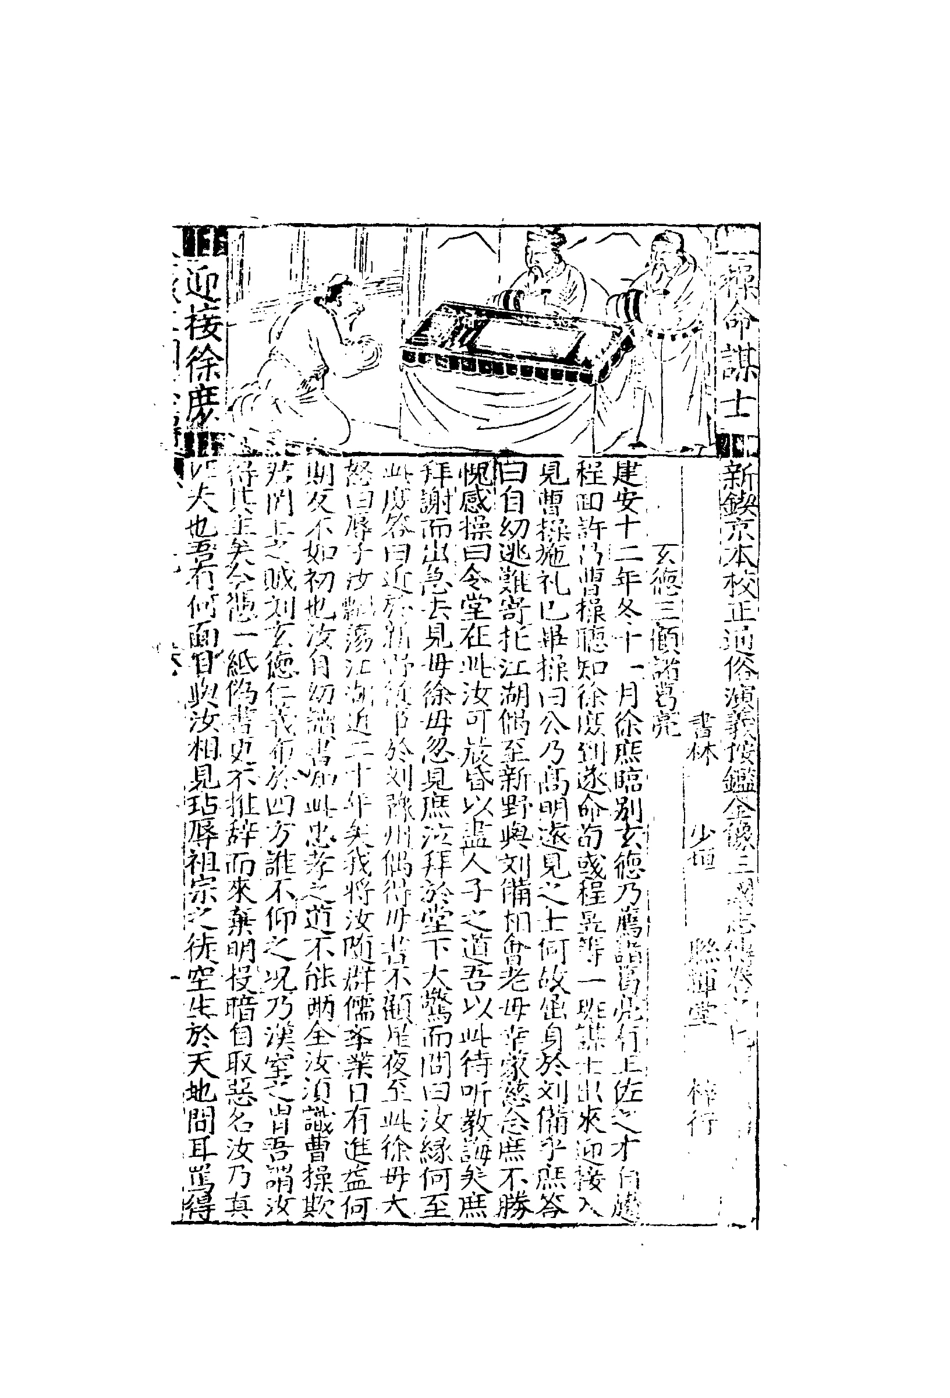 操命謀士
迎接徐庶
新鍥京本校正通俗演義按鑑全像三國志傳卷之
書林 少垣 聯輝堂 梓行
玄德三顧諸葛亮
建安十二年冬十一月徐庶臨别玄德乃薦諸葛亮有王佐之才自遶
程回許乃曹操聽知徐庶到遂命荀彧程昱等一班謀士出來迎接入
見曹操施礼已畢操曰公乃高明遠見之士何故屈身於刘備乎庶答
曰自幼逃難寄托江湖偶至新野與刘備相會老母幸蒙慈念庶不勝
愧感操曰令堂在此汝可晨昏以盡人子之道吾以此待听教誨矣庶
拜謝而出急去見母徐母忽見庶泣拜於堂下大驚而問曰汝縁何至
此庶答曰近於新野 事於刘豫州偶得母書不顧星夜至此徐母大
怒曰辱子汝飄蕩江湖近二十年矣我將汝随群儒李業日有進益何
期反不如初也汝自幼讀書知此忠孝之道不能兩全汝須識曹操欺
君罔上之賊刘玄德仁義布於四方誰不仰之况乃漢室之胄吾謂汝
得其主矣今憑一紙偽書更不推辞而來棄明投暗自取惡名汝乃真
匹夫也吾有何面目與汝相見玷辱祖宗之徒空生於天地間耳罵得